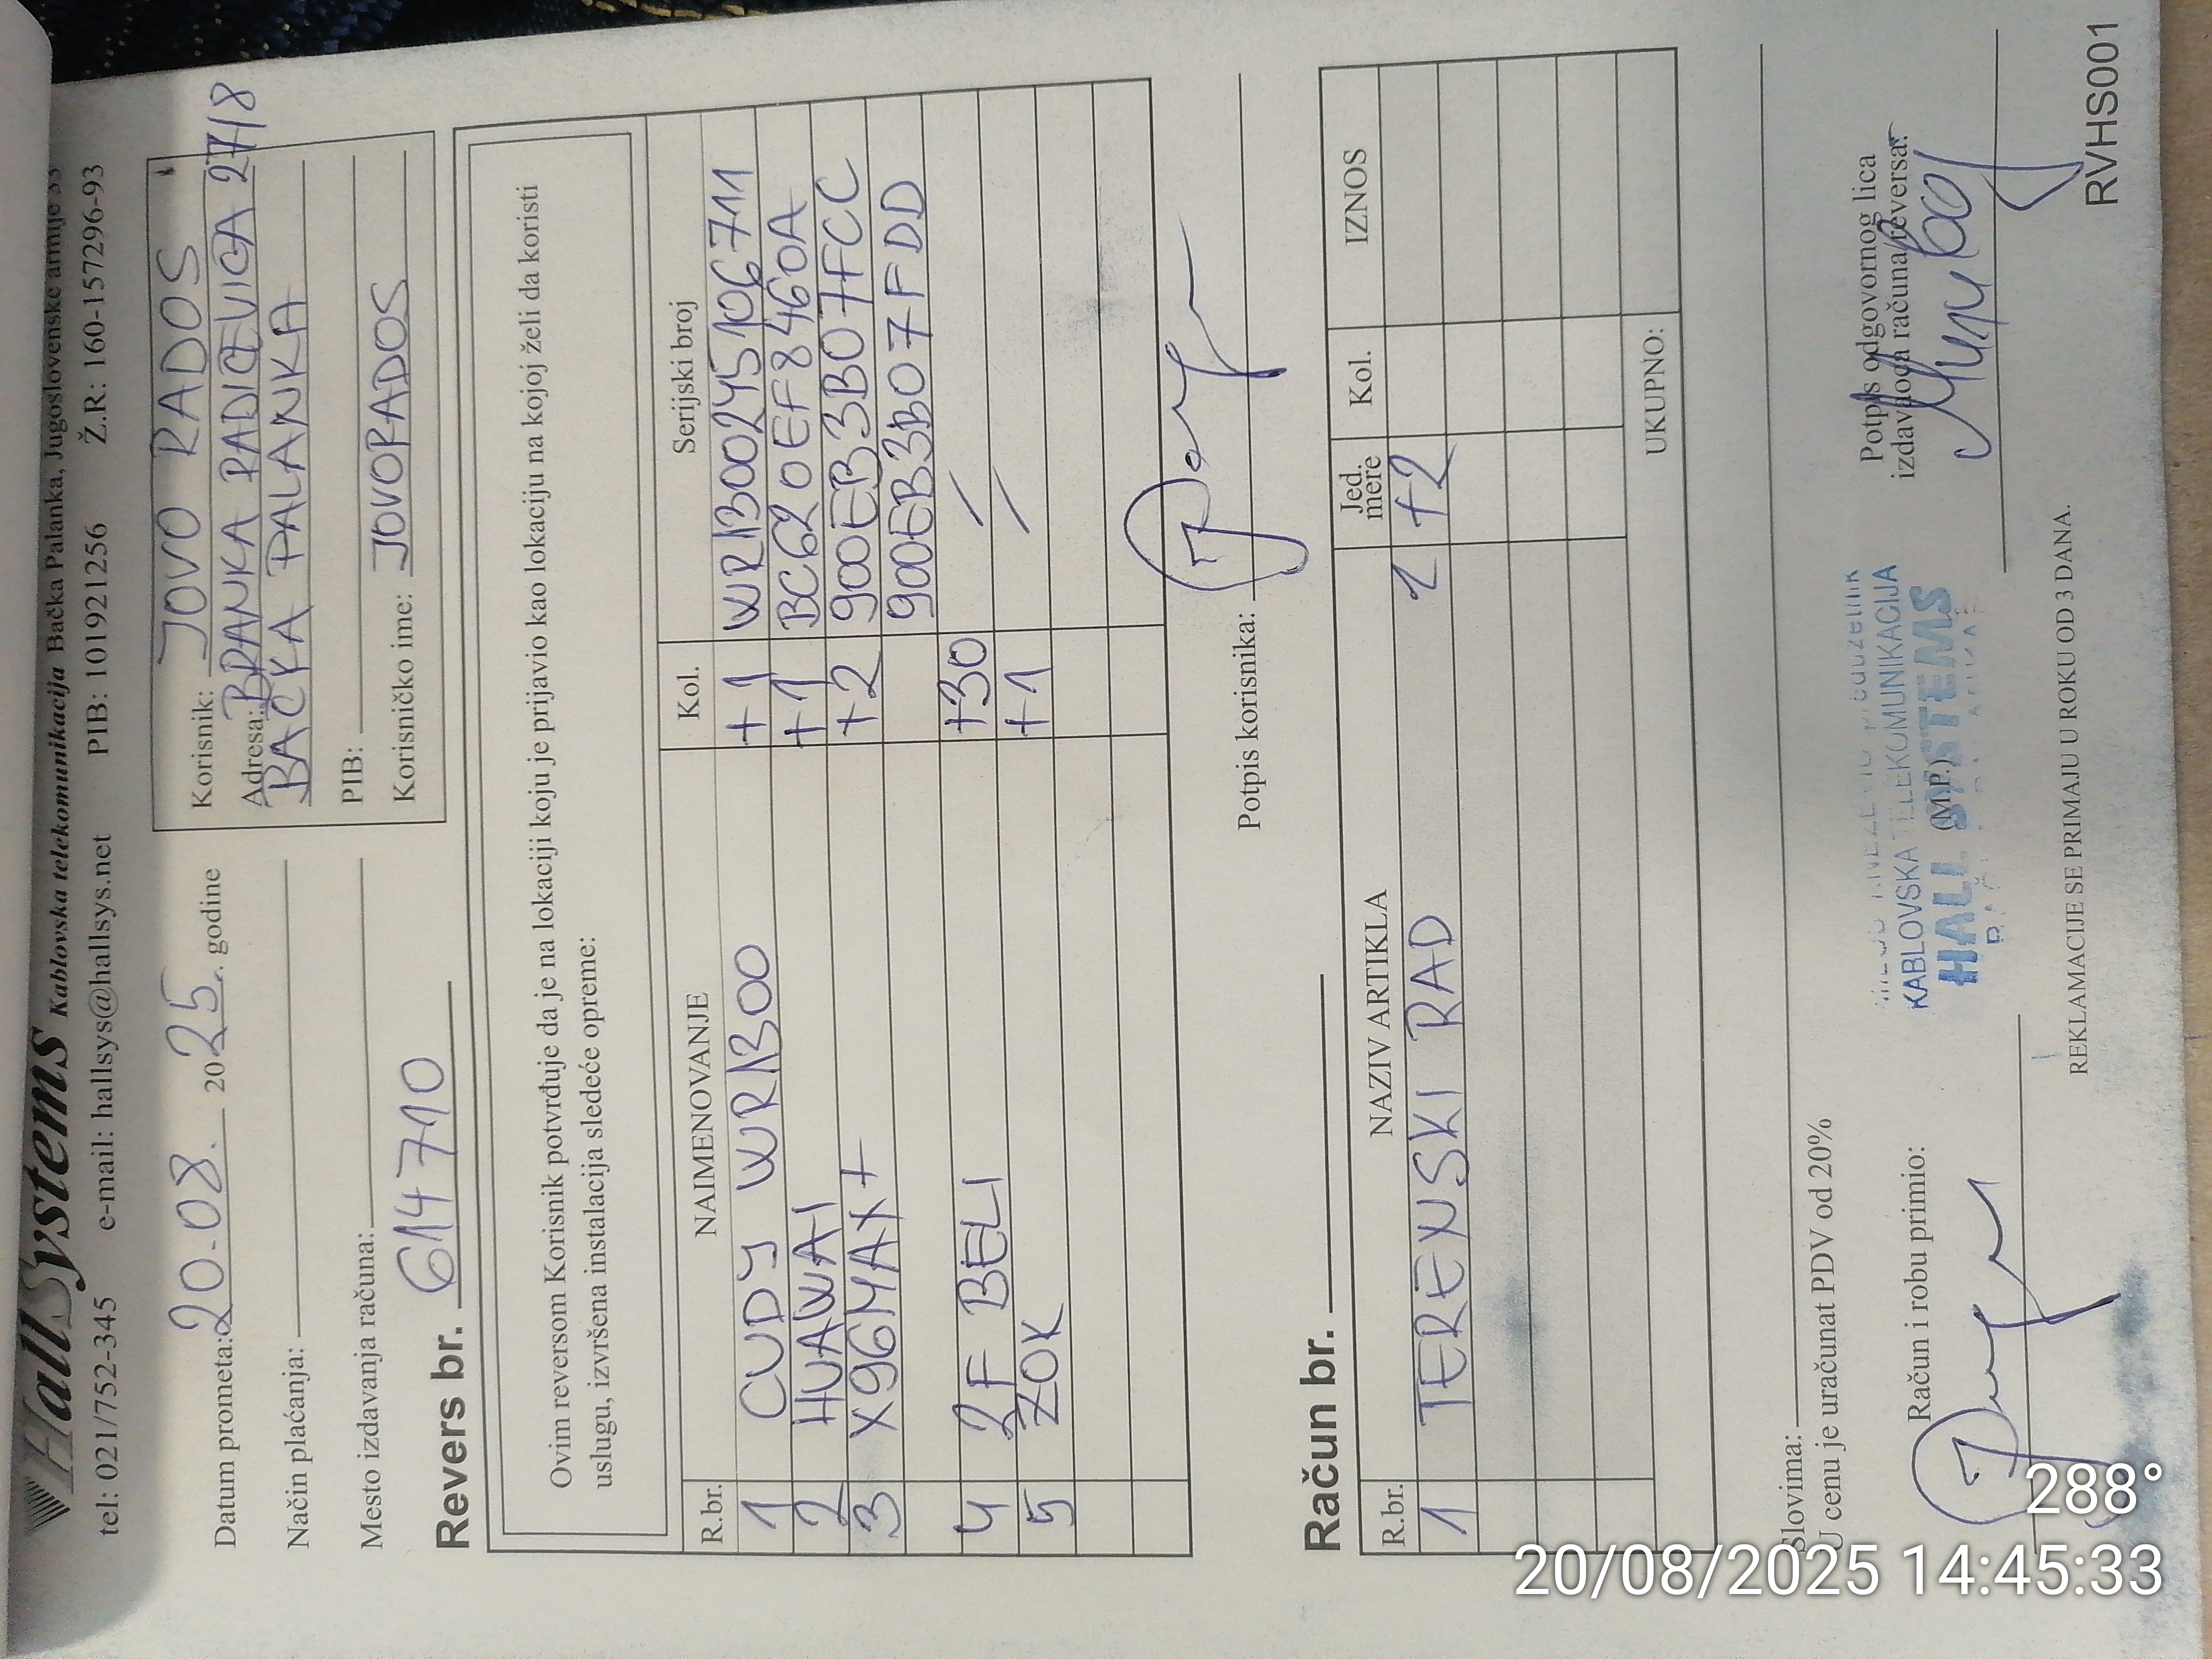 HallSystems Kablovska telekomunikacija Bačka Palanka, Jugoslovenske armije
tel: 021/752-345 e-mail: hallsys@hallsys.net PIB: 101921256 Ž.R: 160-157296-93
Datum prometa: 20.08. 2025. godine
Način plaćanja:
Mesto izdavanja računa:
Korisnik: JOVO RADOS
Adresa: BRANKA RADIČEVIĆA 27/8
BAČKA PALANKA
PIB:
Korisničko ime: JOVORADOS
Revers br. 614710
Ovim reversom Korisnik potvrđuje da je na lokaciji koju je prijavio kao lokaciju na kojoj želi da koristi
uslugu, izvršena instalacija sledeće opreme:
R.br. NAIMENOVANJE Kol. Serijski broj
1 CUDY WR1300 +1 WR1300245106711
2 HUAWAI +1 BC620EF8460A
3 X96MAX+ +2 900EB3B07FCC
900EB3B07FDD
4 2F BELI +30 /
5 ZOK +1 /
Potpis korisnika:
Račun br.
R.br. NAZIV ARTIKLA Jed. mere Kol. IZNOS
1 TERENSKI RAD 1 +2
UKUPNO:
Slovima:
U cenu je uračunat PDV od 20%
Račun i robu primio:
KABLOVSKA TELEKOMUNIKACIJA
HALL SYSTEMS
(M.P.)
Potpis odgovornog lica
izdavaoca računa/reversa:
REKLAMACIJE SE PRIMAJU U ROKU OD 3 DANA.
RVHS001
288°
20/08/2025 14:45:33